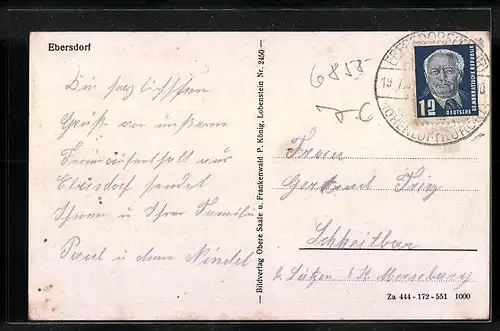 Ebersdorf
Die herzlichsten
Grüße von unserem
Ferienaufenthalt aus
Ebersdorf sendet
Ihnen u Ihrer Familie
Paul u
Bildverlag Obere Saale u. Frankenwald P. König, Lobenstein Nr. 2450 -
6855
EBERSDORF
HÖHENLUFTKURORT
19
12
DEUTSCHE
DEMOKRATISCHE REPUBLIK
Frau
Gertrud
Scheitbar
b. Lützen Merseburg
Za 444 - 172 - 551 1000